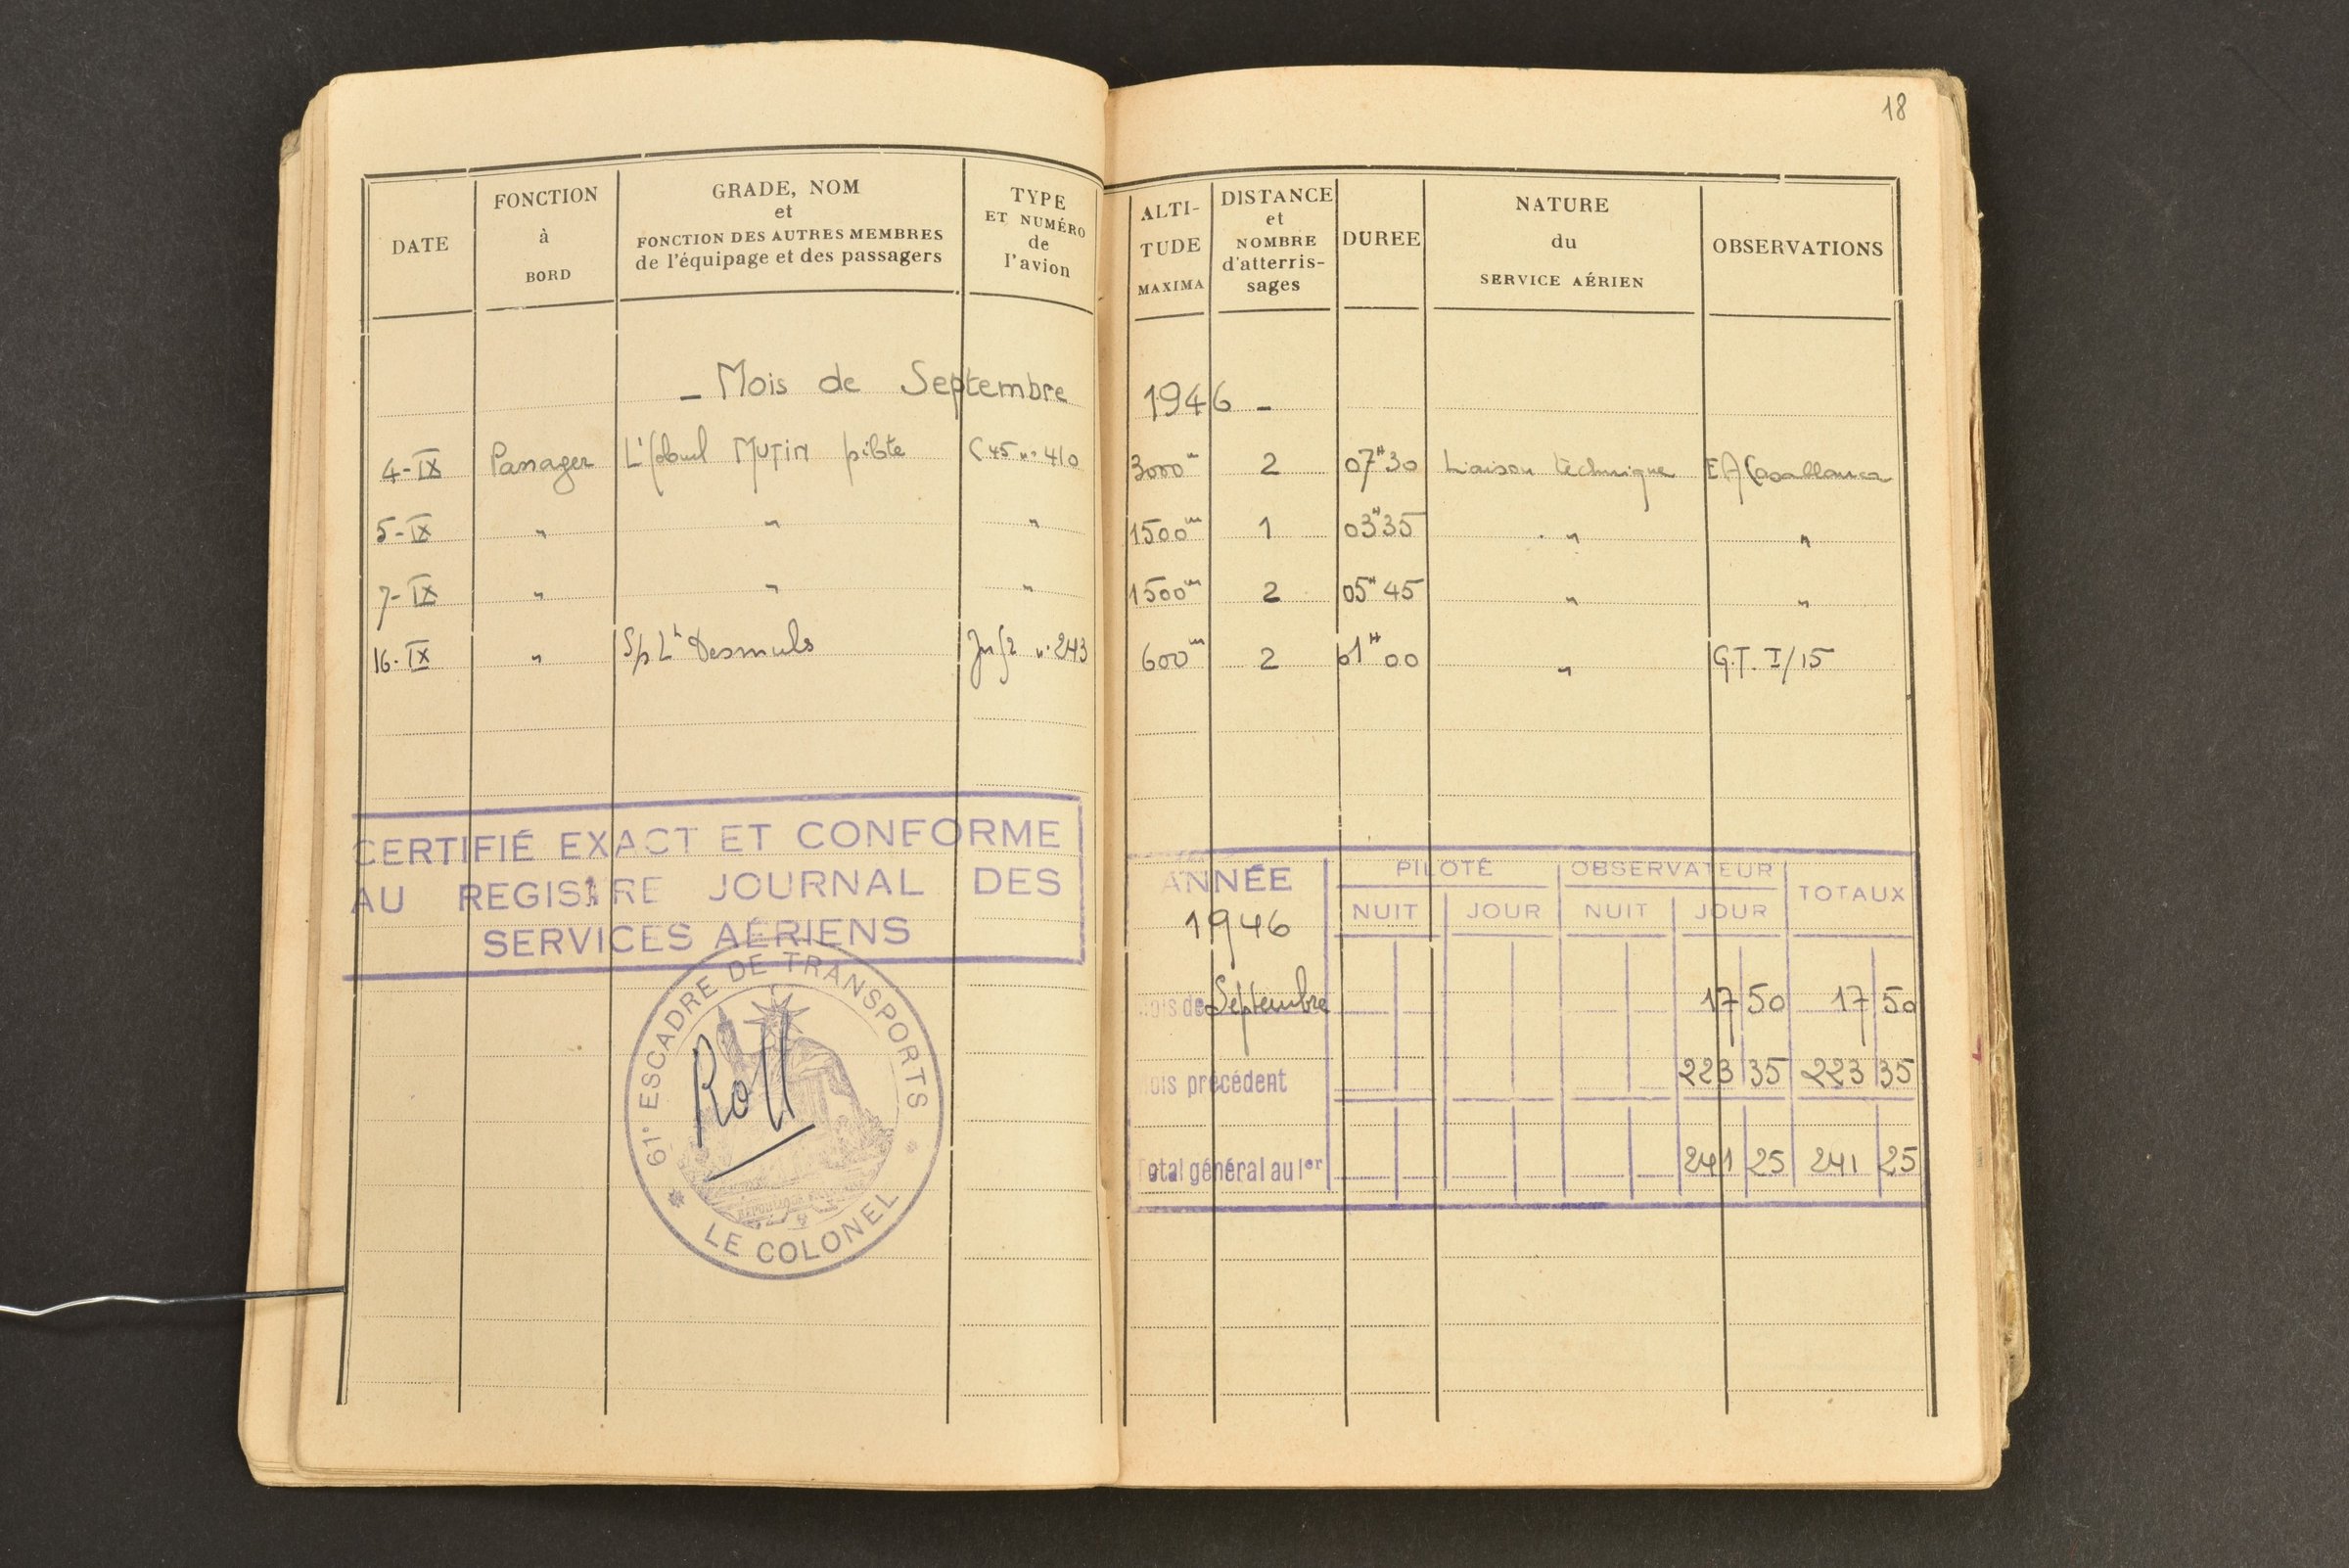 18
DATE
FONCTION
à
BORD
GRADE, NOM
et
FONCTION DES AUTRES MEMBRES
de l'équipage et des passagers
TYPE
ET NUMÉRO
de
l'avion
ALTI-
TUDE
MAXIMA
DISTANCE
et
NOMBRE
d'atterris-
sages
DUREE
NATURE
du
SERVICE AÉRIEN
OBSERVATIONS
- Mois de Septembre 1946 -
4-IX Passager MUTIN pilote C45 n° 410 3000m 2 07H30 Liaison technique EA Casablanca
5-IX " " " 1500m 1 03H35 " "
7-IX " " " 1500m 2 05H45 " "
16-IX " n° 243 600m 2 01H00 " G.T. I/15
CERTIFIÉ EXACT ET CONFORME
AU REGISTRE JOURNAL DES
SERVICES AÉRIENS
61e ESCADRE DE TRANSPORTS
LE COLONEL
ANNÉE
1946
PILOTE
OBSERVATEUR
TOTAUX
NUIT JOUR NUIT JOUR
Mois de Septembre 17 50 17 50
Mois précédent 223 35 223 35
Total général au 1er 241 25 241 25